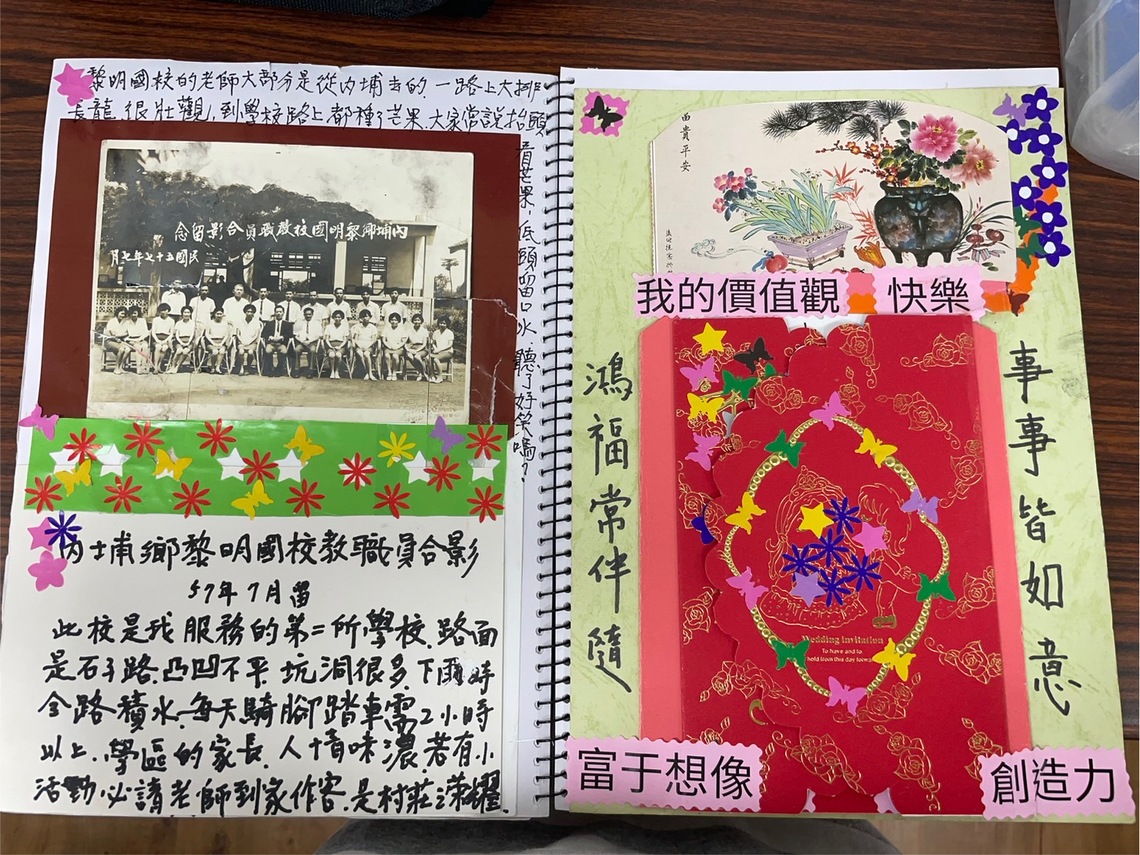 黎明國校的老師大部分是從內埔去的.一路上大排
長龍.很壯觀,到學校路上都種了芒果.大家常說抬頭
看芒果,低頭留口水.聽了好笑嗎?
內埔鄉黎明國校教職員合影留念
民國五十七年七月
內埔鄉黎明國校教職員合影
57年7月留
此校是我服務的第二所學校.路面
是石子路.凸凹不平.坑洞很多.下雨時
全路積水.每天騎腳踏車需2小時
以上.學區的家長.人情味濃.若有小
活動必請老師到家作客.是村莊榮耀.
曲貴平安
我的價值觀 快樂
鴻福常伴隨
事事皆如意
Wedding invitation
To have and to
hold from this day forward
富于想像
創造力